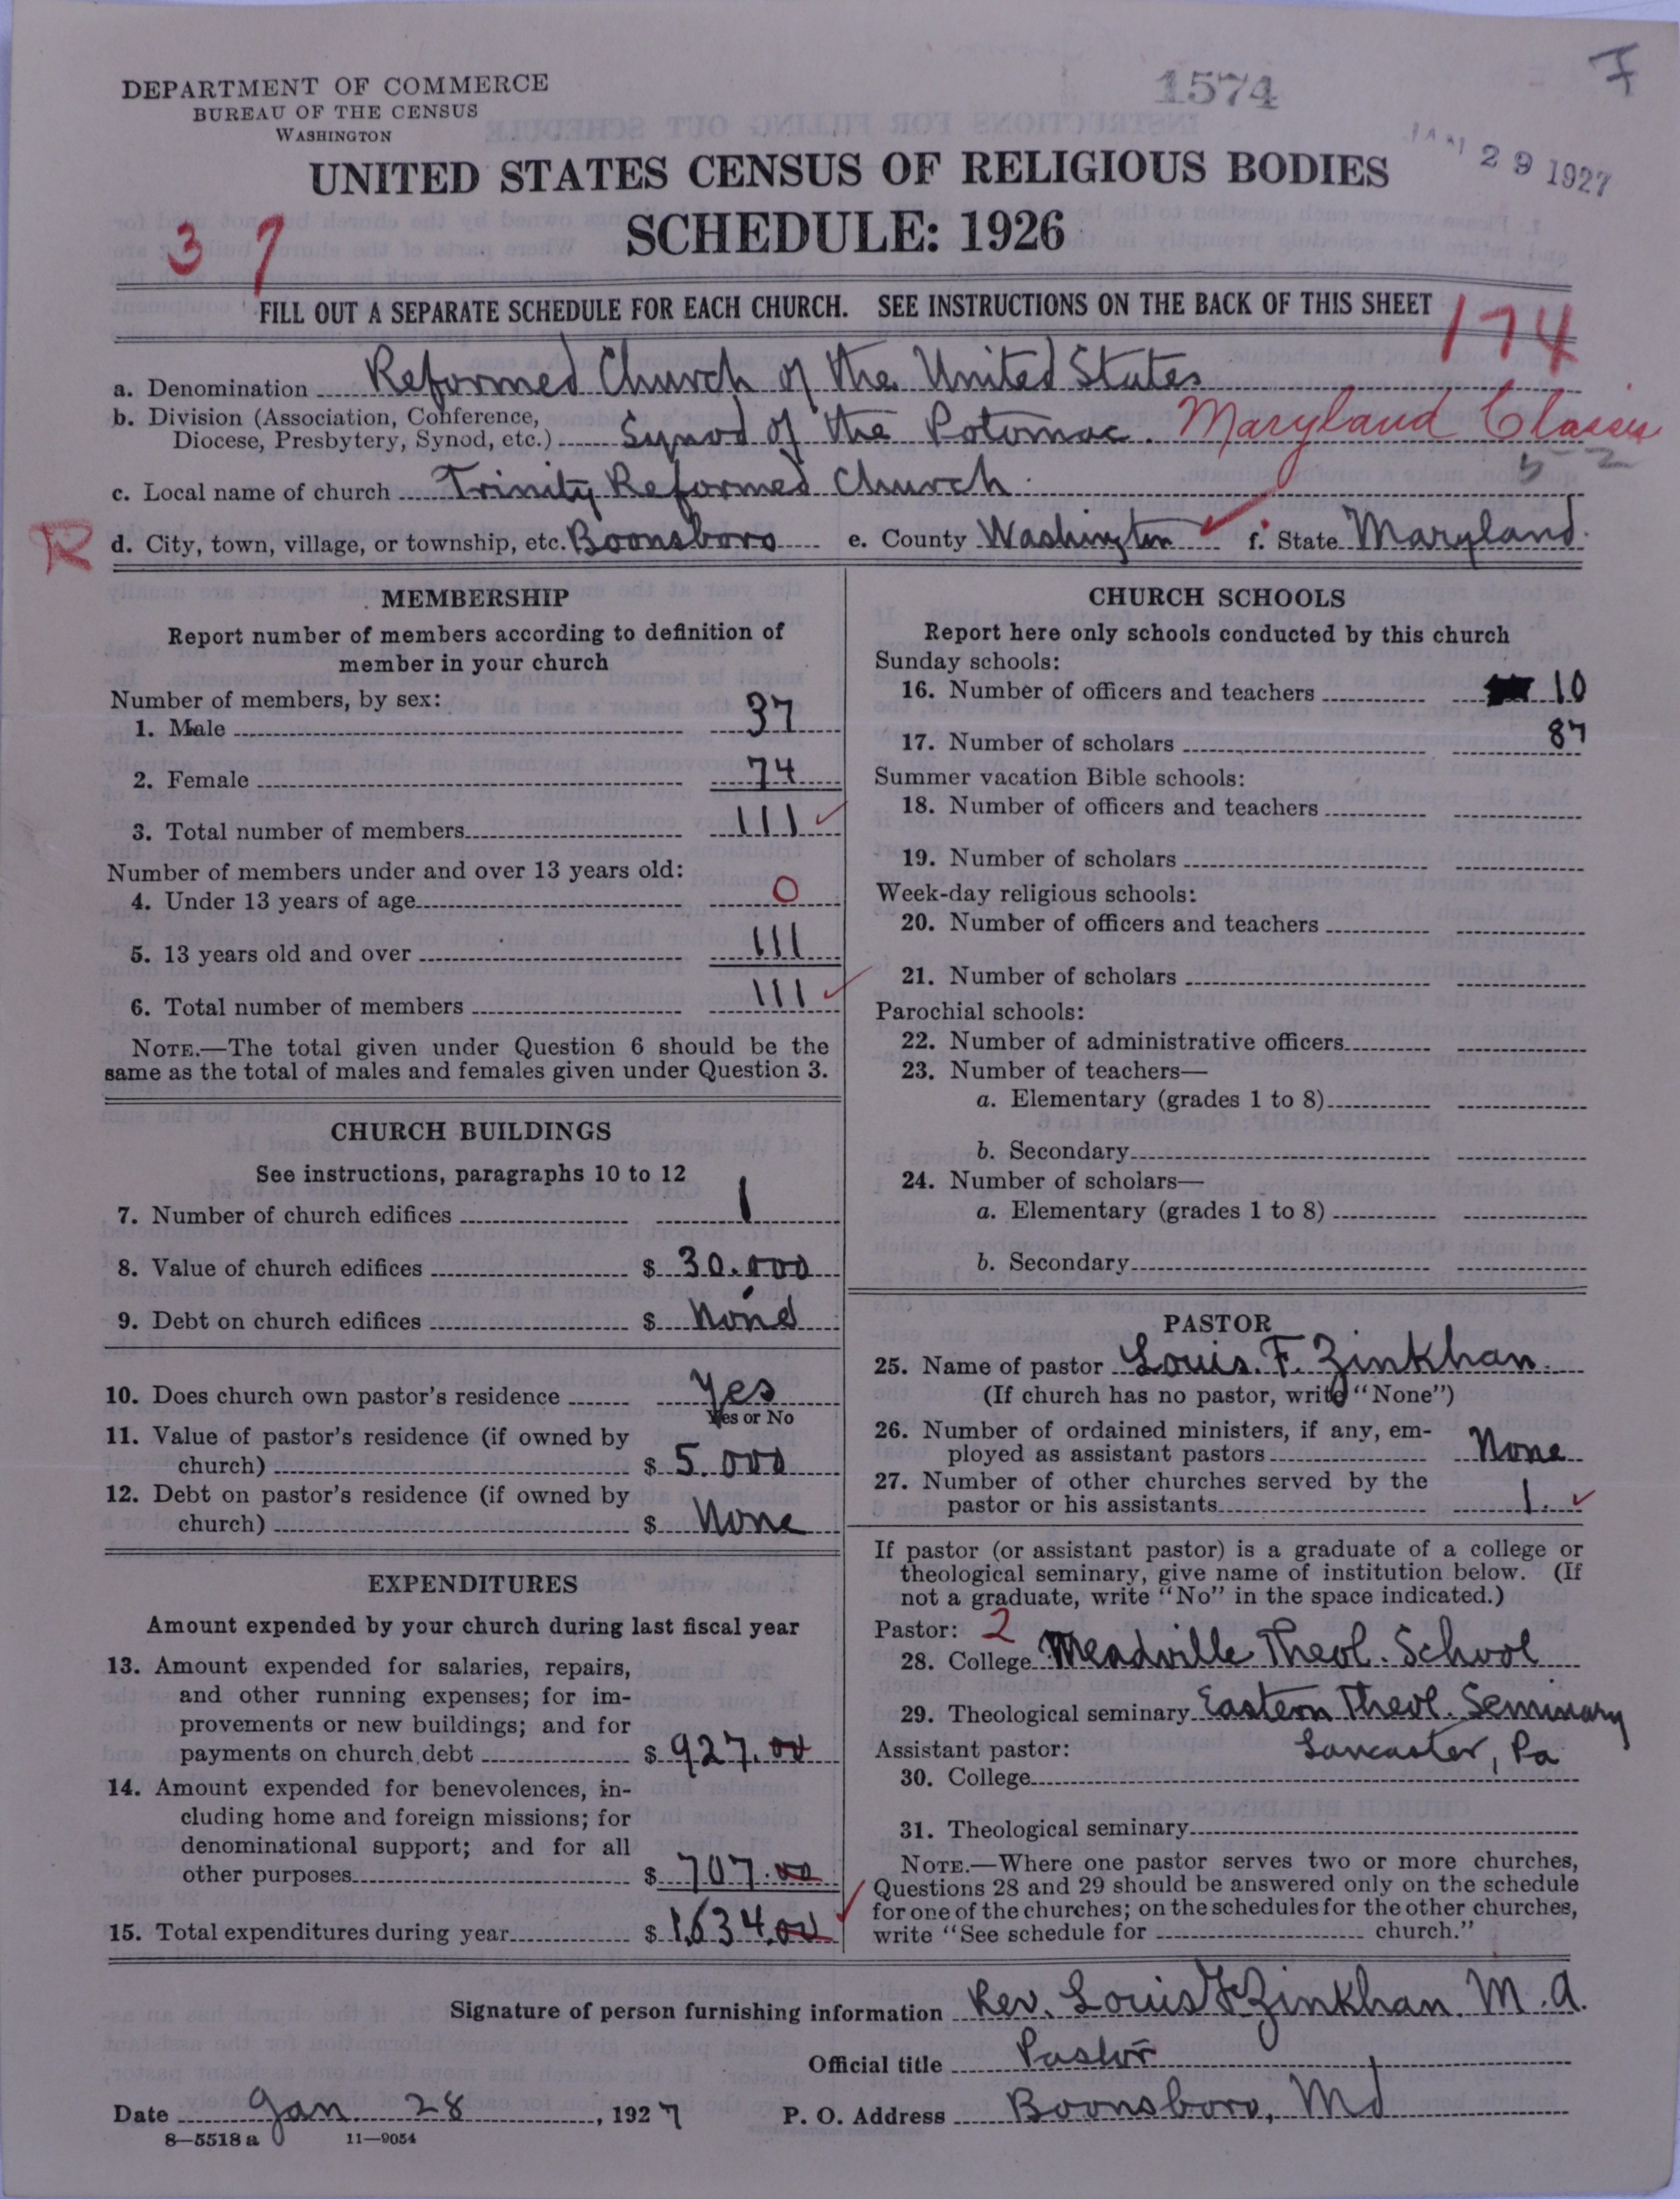 DEPARTMENT OF COMMERCE
BUREAU OF THE CENSUS
WASHINGTON
1574
F
JAN 29 1927
UNITED STATES CENSUS OF RELIGIOUS BODIES
SCHEDULE: 1926
37
FILL OUT A SEPARATE SCHEDULE FOR EACH CHURCH. SEE INSTRUCTIONS ON THE BACK OF THIS SHEET
174
a. Denomination Reformed Church of the United States
b. Division (Association, Conference,
Diocese, Presbytery, Synod, etc.) Synod of the Potomac. Maryland Classis
c. Local name of church Trinity Reformed Church
R
d. City, town, village, or township, etc. Boonsboro e. County Washington f. State Maryland.
MEMBERSHIP
Report number of members according to definition of
member in your church
Number of members, by sex:
1. Male 37
2. Female 74
3. Total number of members 111
Number of members under and over 13 years old:
4. Under 13 years of age 0
5. 13 years old and over 111
6. Total number of members 111
NOTE.—The total given under Question 6 should be the
same as the total of males and females given under Question 3.
CHURCH BUILDINGS
See instructions, paragraphs 10 to 12
7. Number of church edifices 1
8. Value of church edifices $ 30.000
9. Debt on church edifices $ None
10. Does church own pastor's residence Yes
Yes or No
11. Value of pastor's residence (if owned by
church) $ 5.000
12. Debt on pastor's residence (if owned by
church) $ None
EXPENDITURES
Amount expended by your church during last fiscal year
13. Amount expended for salaries, repairs,
and other running expenses; for im-
provements or new buildings; and for
payments on church debt $ 927.00
14. Amount expended for benevolences, in-
cluding home and foreign missions; for
denominational support; and for all
other purposes $ 707.00
15. Total expenditures during year $ 1,634.00
CHURCH SCHOOLS
Report here only schools conducted by this church
Sunday schools:
16. Number of officers and teachers 10
17. Number of scholars 87
Summer vacation Bible schools:
18. Number of officers and teachers
19. Number of scholars
Week-day religious schools:
20. Number of officers and teachers
21. Number of scholars
Parochial schools:
22. Number of administrative officers
23. Number of teachers—
a. Elementary (grades 1 to 8)
b. Secondary
24. Number of scholars—
a. Elementary (grades 1 to 8)
b. Secondary
PASTOR
25. Name of pastor Louis. F. Zinkhan.
(If church has no pastor, write "None")
26. Number of ordained ministers, if any, em-
ployed as assistant pastors None
27. Number of other churches served by the
pastor or his assistants 1.
If pastor (or assistant pastor) is a graduate of a college or
theological seminary, give name of institution below. (If
not a graduate, write "No" in the space indicated.)
Pastor: 2
28. College Meadville Theol. School
29. Theological seminary Eastern Theol. Seminary
Assistant pastor: Lancaster, Pa
30. College
31. Theological seminary
NOTE.—Where one pastor serves two or more churches,
Questions 28 and 29 should be answered only on the schedule
for one of the churches; on the schedules for the other churches,
write "See schedule for church."
Signature of person furnishing information Rev. Louis F Zinkhan. M.A.
Official title Pastor
Date Jan. 28, 1927 P. O. Address Boonsboro, Md
8—5518 a 11—9054